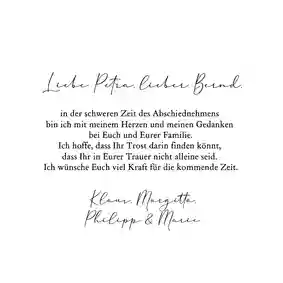 Liebe Petra, lieber Bernd,
in der schweren Zeit des Abschiednehmens
bin ich mit meinem Herzen und meinen Gedanken
bei Euch und Eurer Familie.
Ich hoffe, dass Ihr Trost darin finden könnt,
dass Ihr in Eurer Trauer nicht alleine seid.
Ich wünsche Euch viel Kraft für die kommende Zeit.
Klaus, Margitta,
Philipp & Marie